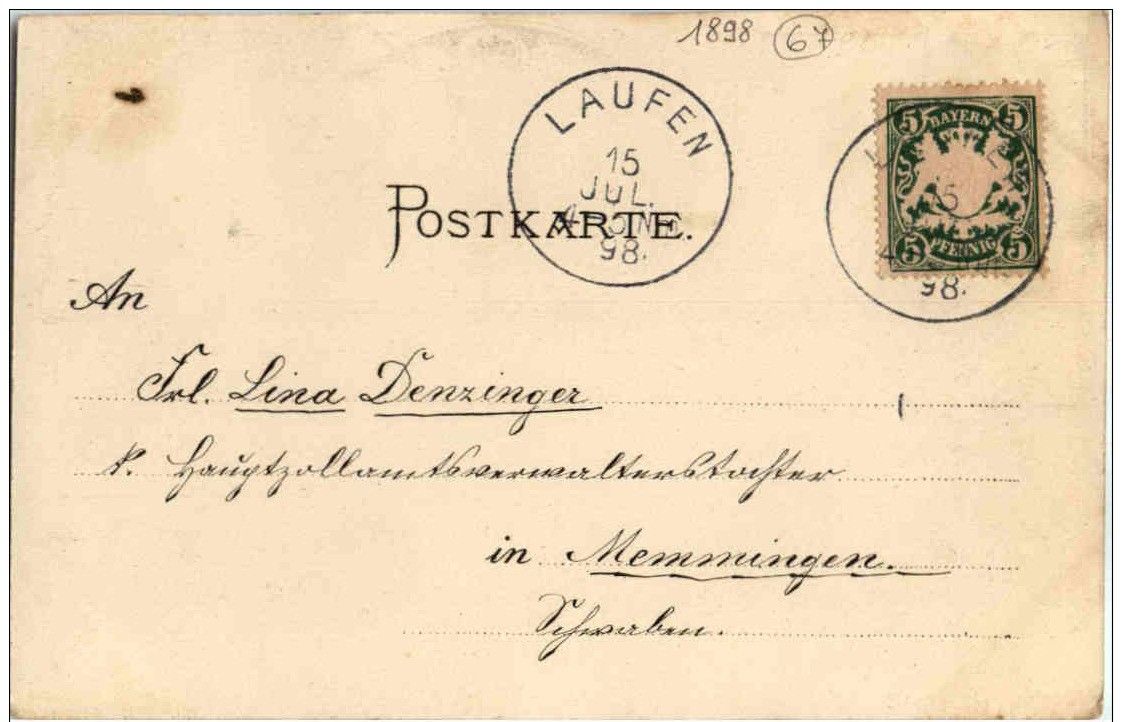 1898 67
LAUFEN
15
JUL.
98.
5 BAYERN 5
5 PFENNIG 5
98.
POSTKARTE.
An
Frl. Lina Denzinger
k. Hauptzollamtsverwalterstochter
in Memmingen.
Schwaben.